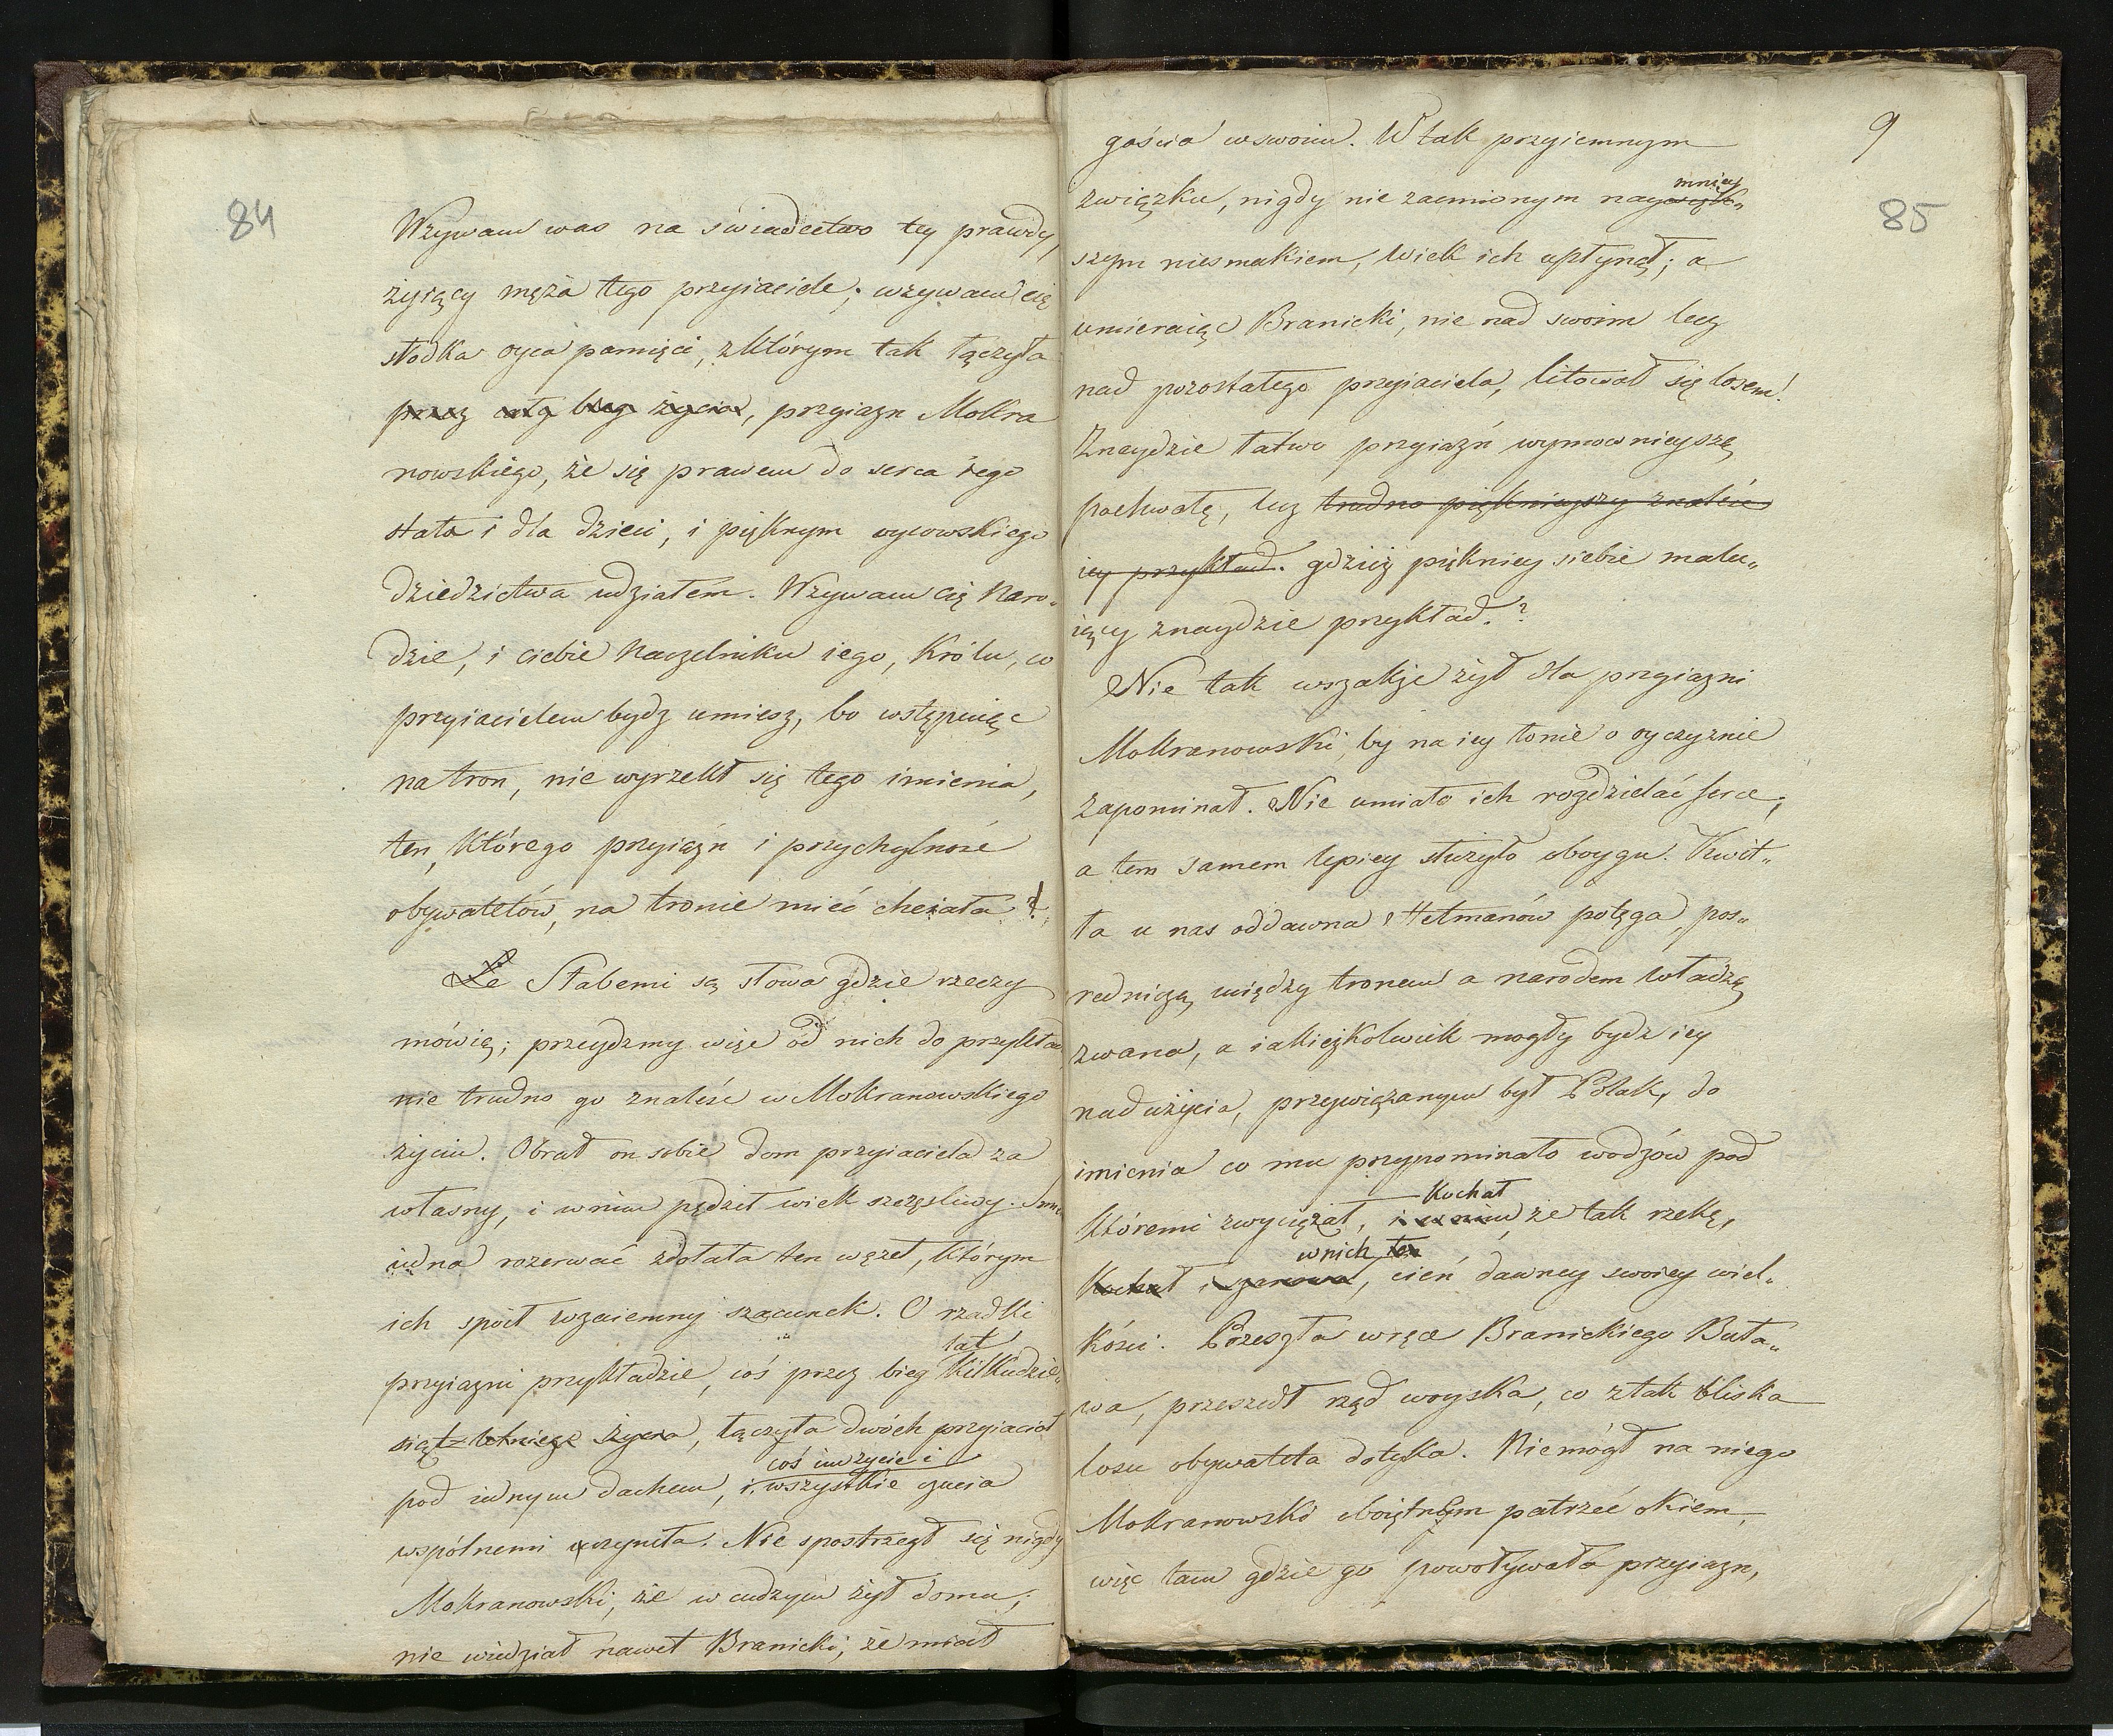 84
Wzywam was na świadectwo tey prawdy,
żyiący męża tego przyiaciele; wzywam cię
słodka oyca pamięci, z którym tak łączyła
przez cały bieg życia, przyiazn Mokra
nowskiego, że się prawem do serca iego
stała i dla dzieci, i pięknym oycowskiego
dziedzictwa udziałem. Wzywam cię Naro„
dzie, i ciebie Naczelniku iego, Królu, co
przyiacielem bydz umiesz, bo wstępuiąc
na tron, nie wyrzekł się tego imienia,
ten, którego przyiaźn i przychylność
obywatelów, na tronie mieć chciała!
Że Słabemi są słowa gdzie rzeczy
mówią; przeydzmy więc od nich do przykład
nie trudno go znaleść w Mokranowskiego
życiu. Obrał on sobie dom przyiaciela za
własny, i w nim pędził wiek szczęśliwy. Smi
iedna rozerwać zdołała ten węzeł, którym
ich spoił wzaiemny szacunek. O rzadki
lat
przyiazni przykładzie, coś przez bieg kilkudzie„
siąt letniego życia, łączyła dwóch przyiaciół
coś im życie i
pod iednym dachem, i wszystkie czucia
wspólnemi uczyniła. Nie spostrzegł się nigdy
Mokranowski, że w cudzym żył domu;
nie wiedział nawet Branicki, że miał
9
85
gościa w swoim. W tak przyiemnym
mniey
związku, nigdy nie zaćmionym naywięk„
szym niesmakiem, wiek ich upłynął; a
umieraiąc Branicki, nie nad swoim lecz
nad pozostałego przyiaciela, litował się losem!
Znaydzie łatwo przyiaźń wymownieyszą
pochwałę, lecz trudno pięknieyszy znaleść
iey przykład. gdzież piękniey siebie malu„
iący znaydzie przykład?
Nie tak wszakże żył dla przyiazni
Mokranowski, by na iey łonie o oyczyznie
zapominał. Nie umiało ich rozdzielać serce,
a tem samem lepiey służyło oboygu. Kwit„
ła u nas oddawna Hetmanów potęga, pos„
redniczą między tronem a narodem władzą
zwana, a iakieżkolwiek mogły bydz iey
nadużycia, przywiązanym był Polak, do
imienia co mu przypominało wodzów pod
kochał
któremi zwyciężał, i w nim, że tak rzekę,
w nich ten
kochał i szanował, cień dawney swoiey wiel„
kości. Przeszła w ręce Branickiego Buła„
wa, przeszedł rząd woyska, co z tak bliska
losu obywatela dotyka. Nie mógł na niego
Mokranowski oboiętnym patrzeć okiem,
więc tam gdzie go powoływała przyiazn,